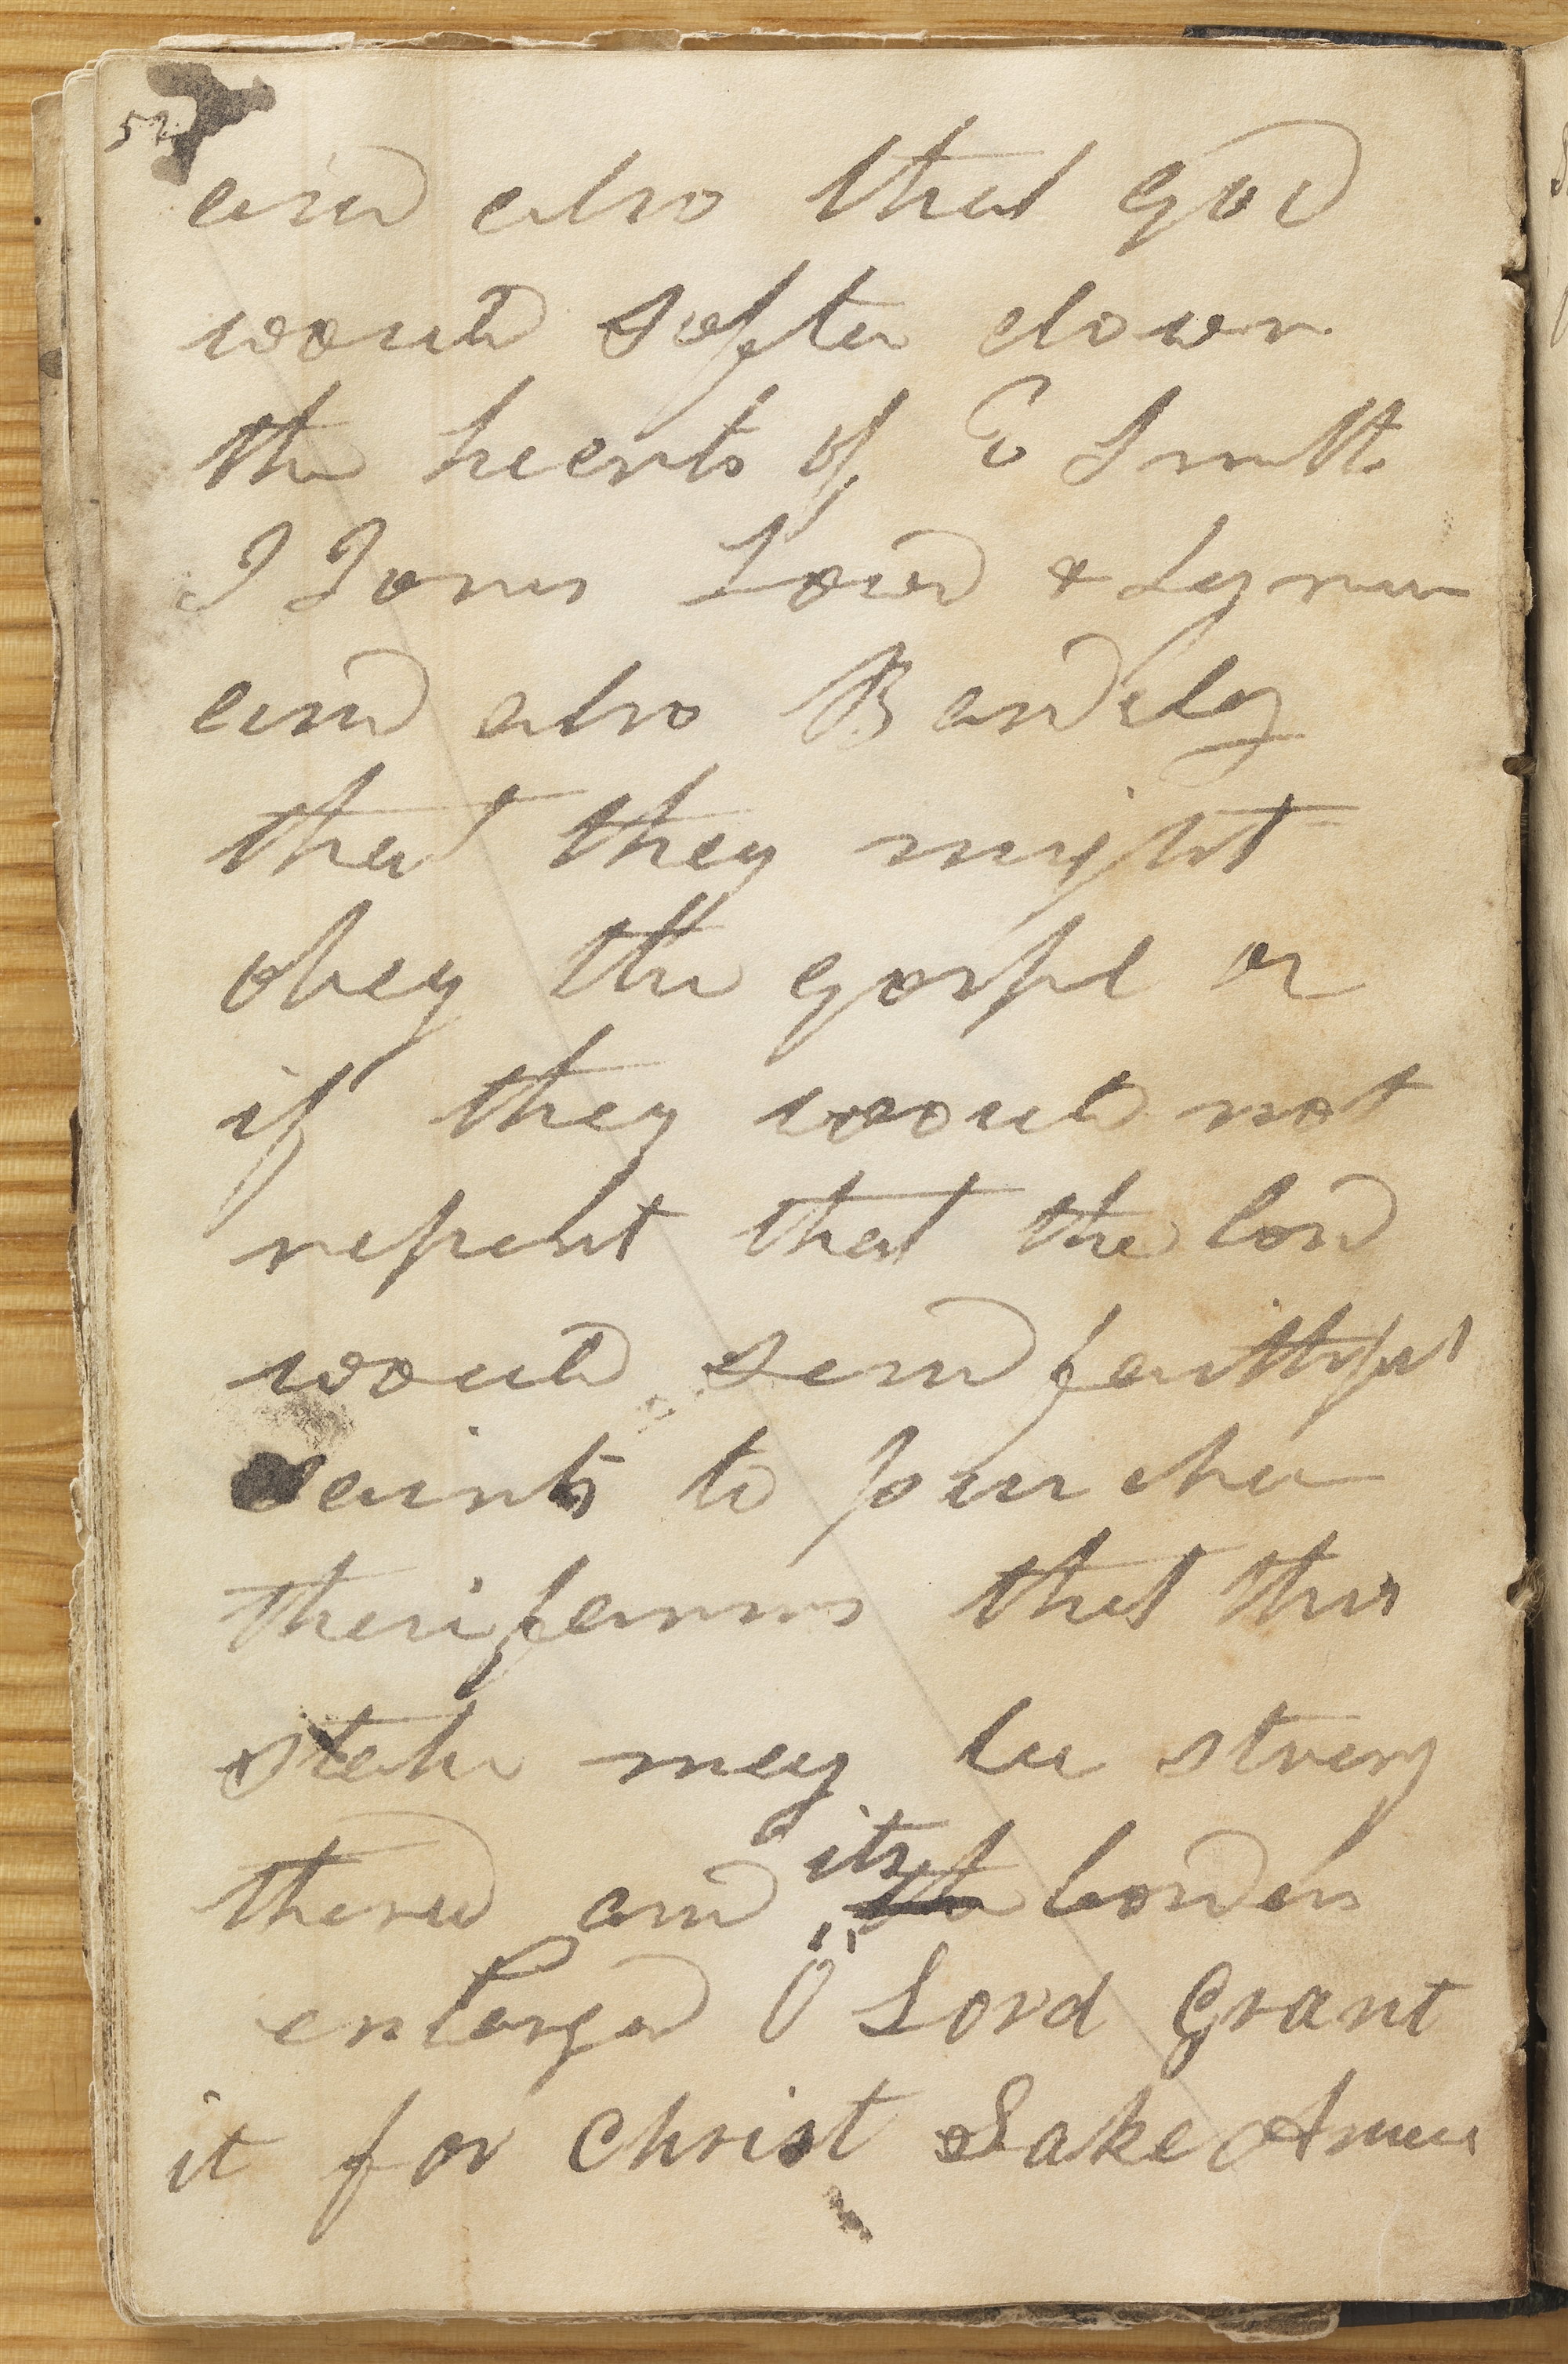 52
and also that god
would soften down
the hearts of E Smith
J Jones Lowd & Lyman
and also Bardsley
that they might
obey the gospel or
if they would not
repent that the lord
would send faithful
saints to purches
their farms that this
stake may be strong
thend and its
borders
enlarged O Lord Grant
it for Christ Sake Amen